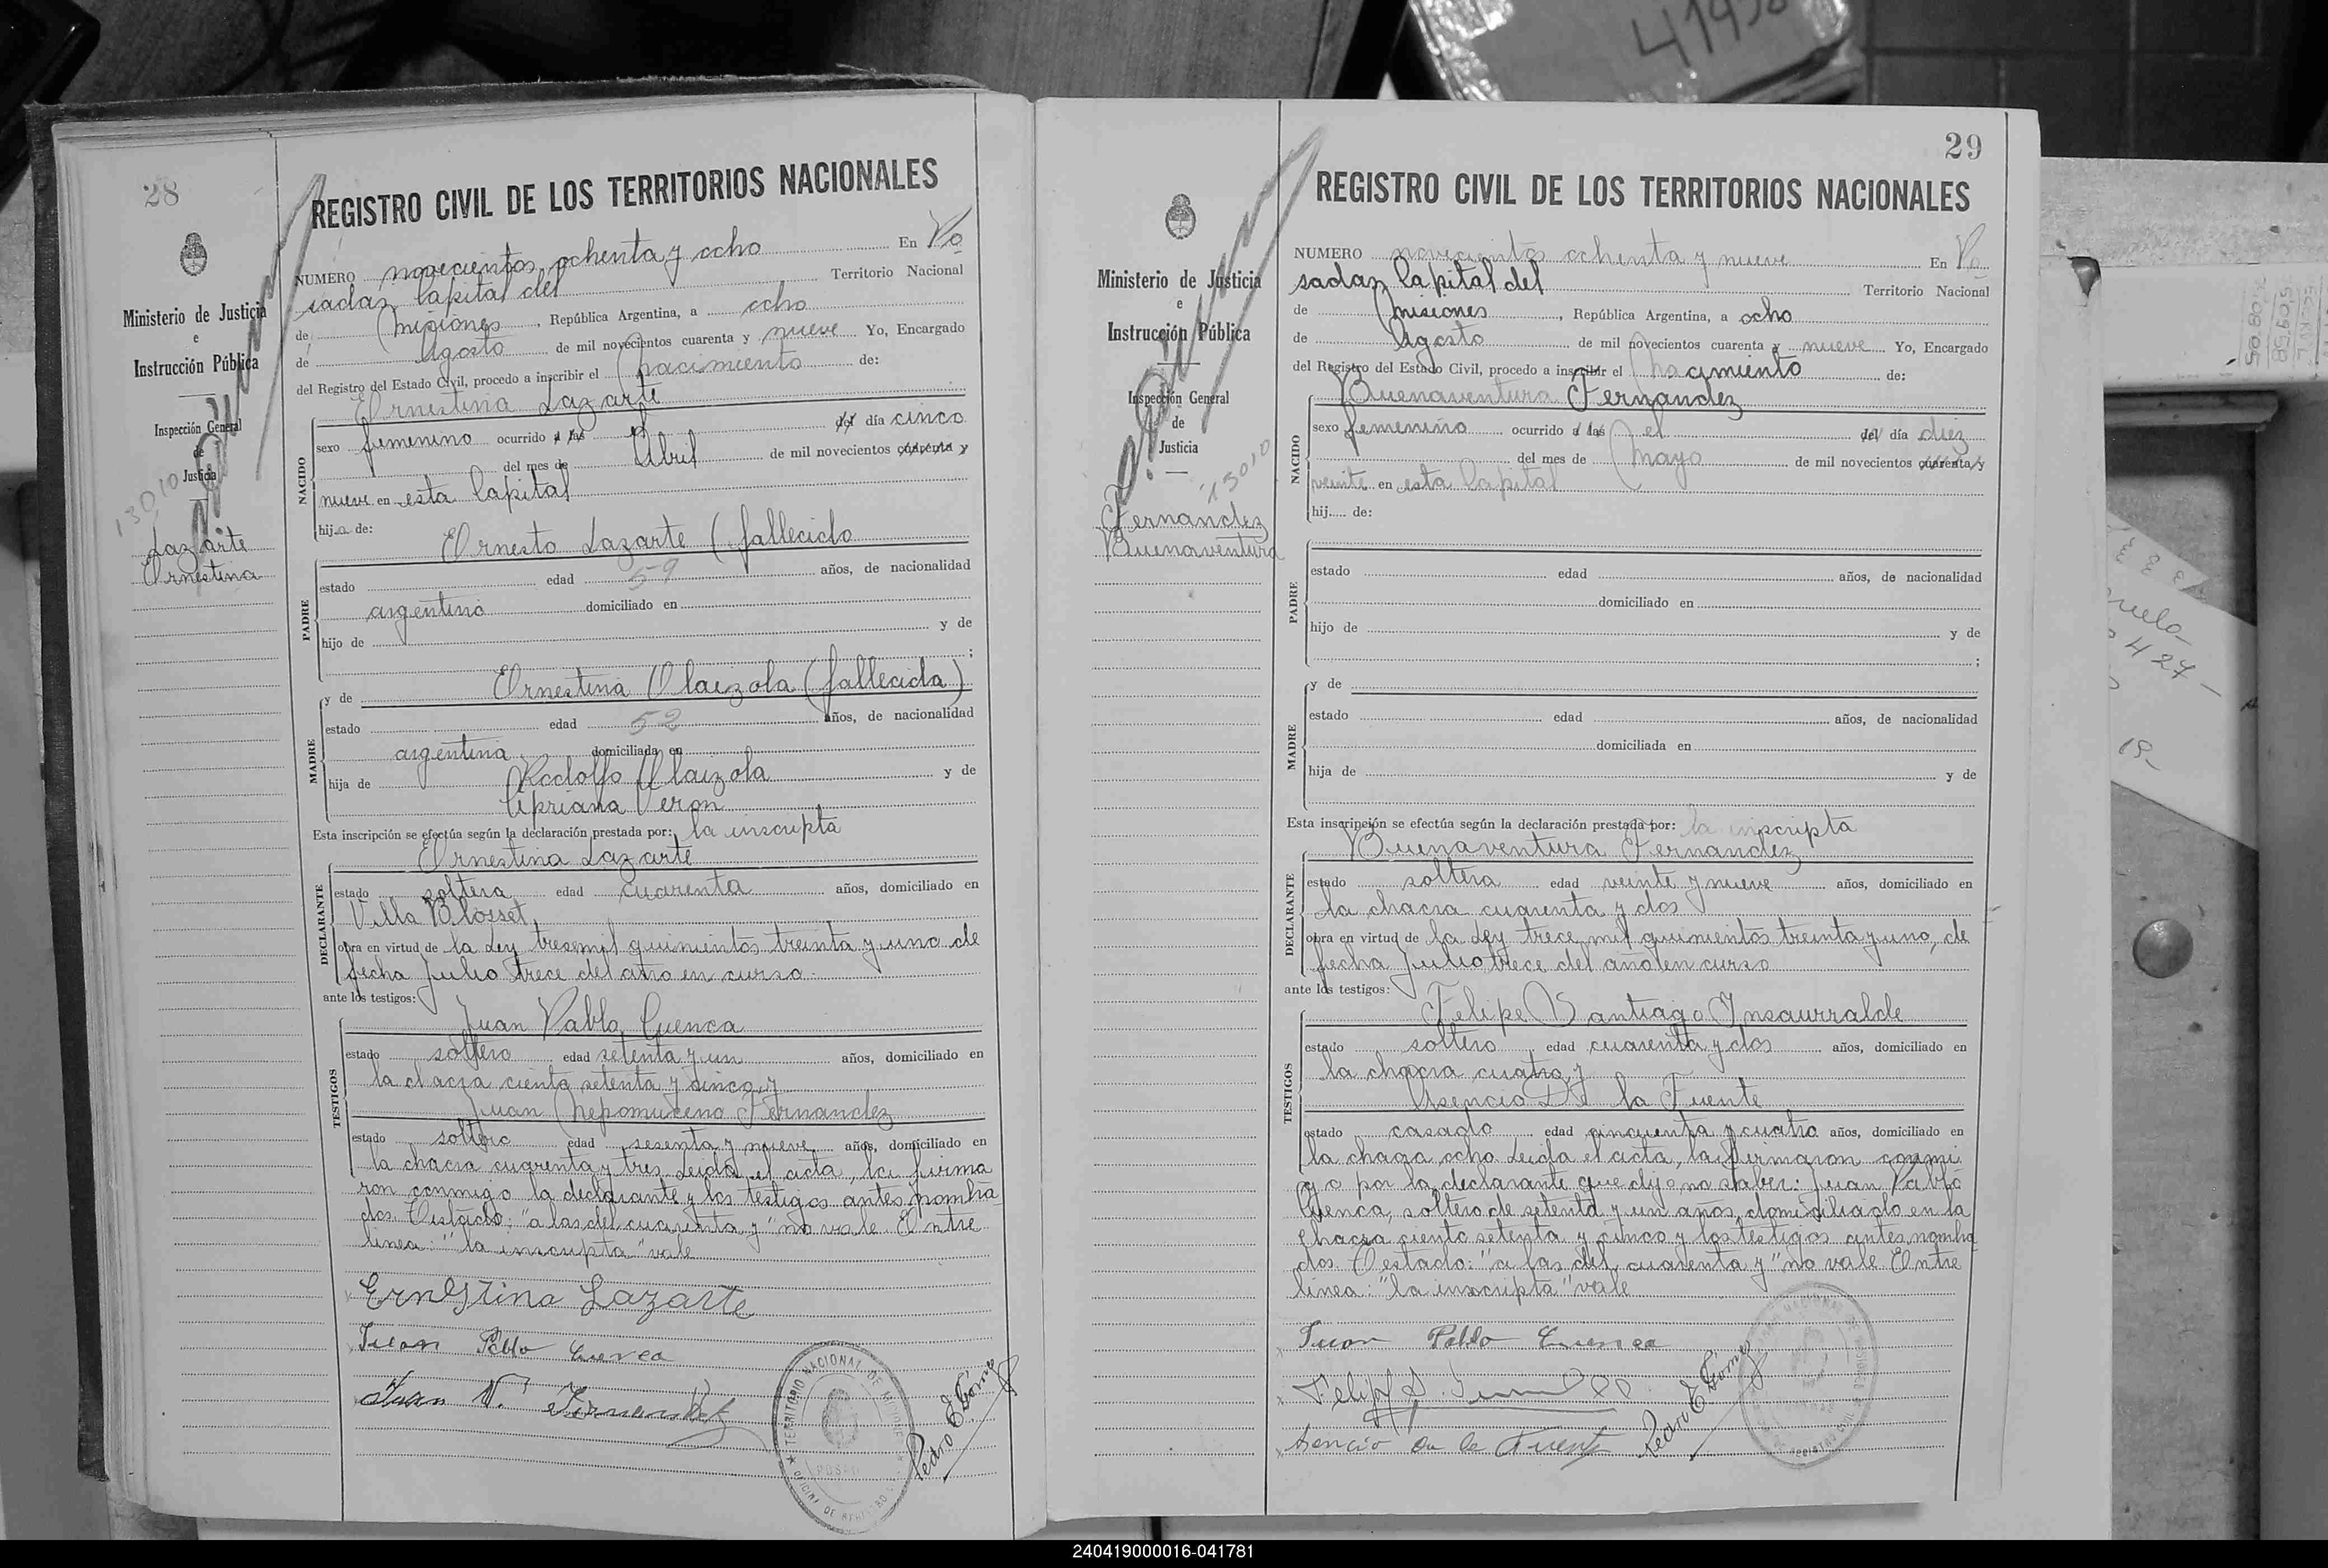 41498
28
Ministerio de Justicia
e
Instrucción Pública
Inspección General
de
Justicia
13010
Lazarte
Ernestina
REGISTRO CIVIL DE LOS TERRITORIOS NACIONALES
NUMERO novecientos ochenta y ocho En Po
sadas Capital del Territorio Nacional
de Misiones, República Argentina, a ocho
de Agosto de mil novecientos cuarenta y nueve Yo, Encargado
del Registro del Estado Civil, procedo a inscribir el nacimiento de:
NACIDO
Ernestina Lazarte
sexo femenino ocurrido a las el del día cinco
del mes de Abril de mil novecientos cuarenta y
nueve en esta Capital
hija de:
PADRE
Ernesto Lazarte (fallecido
estado edad 59 años, de nacionalidad
argentino domiciliado en
hijo de y de
;
MADRE
y de Ernestina Olaizola (fallecida)
estado edad 52 años, de nacionalidad
argentina domiciliada en
hija de Rodolfo Olaizola y de
Cipriana Veron
Esta inscripción se efectúa según la declaración prestada por: la inscripta
DECLARANTE
Ernestina Lazarte
estado soltera edad cuarenta años, domiciliado en
Villa Blosset,
obra en virtud de la Ley trece mil quinientos treinta y uno de
fecha Julio trece del año en curso
ante los testigos:
TESTIGOS
Juan Pablo Cuenca
estado soltero edad setenta y un años, domiciliado en
la chacra ciento setenta y cinco y
Juan Nepomuceno Fernandez
estado soltero edad sesenta y nueve años, domiciliado en
la chacra cuarenta y tres Leida el acta, la firma
ron conmigo la declarante y los testigos antes nombra
dos. Testado: "a las del cuarenta y" no vale. Entre
linea: "la inscripta" vale
Ernestina Lazarte
Juan Pablo Cuenca
Juan N. Fernandez
Pedro E Gomez
TERRITORIO NACIONAL DE MISIONES
OFICINA DE REGISTRO CIVIL
POSADAS
29
Ministerio de Justicia
e
Instrucción Pública
Inspección General
de
Justicia
13010
Fernandez
Buenaventura
REGISTRO CIVIL DE LOS TERRITORIOS NACIONALES
NUMERO novecientos ochenta y nueve En Po
sadas Capital del Territorio Nacional
de Misiones, República Argentina, a ocho
de Agosto de mil novecientos cuarenta y nueve Yo, Encargado
del Registro del Estado Civil, procedo a inscribir el nacimiento de:
NACIDO
Buenaventura Fernandez
sexo femenino ocurrido a las el del día diez
del mes de Mayo de mil novecientos cuarenta y
veinte en esta Capital
hij.... de:
PADRE
estado edad años, de nacionalidad
domiciliado en
hijo de y de
;
MADRE
y de
estado edad años, de nacionalidad
domiciliada en
hija de y de
Esta inscripción se efectúa según la declaración prestada por: la inscripta
DECLARANTE
Buenaventura Fernandez
estado soltera edad veinte y nueve años, domiciliado en
la chacra cuarenta y dos
obra en virtud de la Ley trece mil quinientos treinta y uno, de
fecha Julio trece del año en curso
ante los testigos:
TESTIGOS
Felipe Santiago Insaurralde
estado soltero edad cuarenta y dos años, domiciliado en
la chacra cuatro y
Asencio De la Fuente
estado casado edad cincuenta y cuatro años, domiciliado en
la chacra ocho Leida el acta, la firmaron conmi
go por la declarante que dijo no saber: Juan Pablo
Cuenca, soltero de setenta y un años, domiciliado en la
chacra ciento setenta y cinco y los testigos antes nombra
dos. Testado: "a las del cuarenta y" no vale Entre
linea: "la inscripta" vale
Juan Pablo Cuenca
Asencio De la Fuente
Pedro E Gomez
427
19-
240419000016-041781